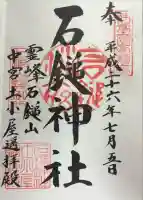 奉
平成二十六年七月五日
石鎚神社
霊峰石鎚山
中宮土小屋遥拝殿